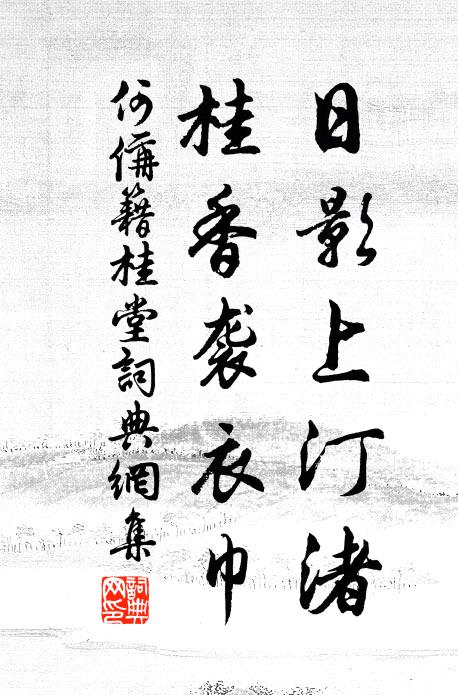 日影上汀渚
桂香袭衣巾
何偁籍桂堂詞典網集
詞典
网印